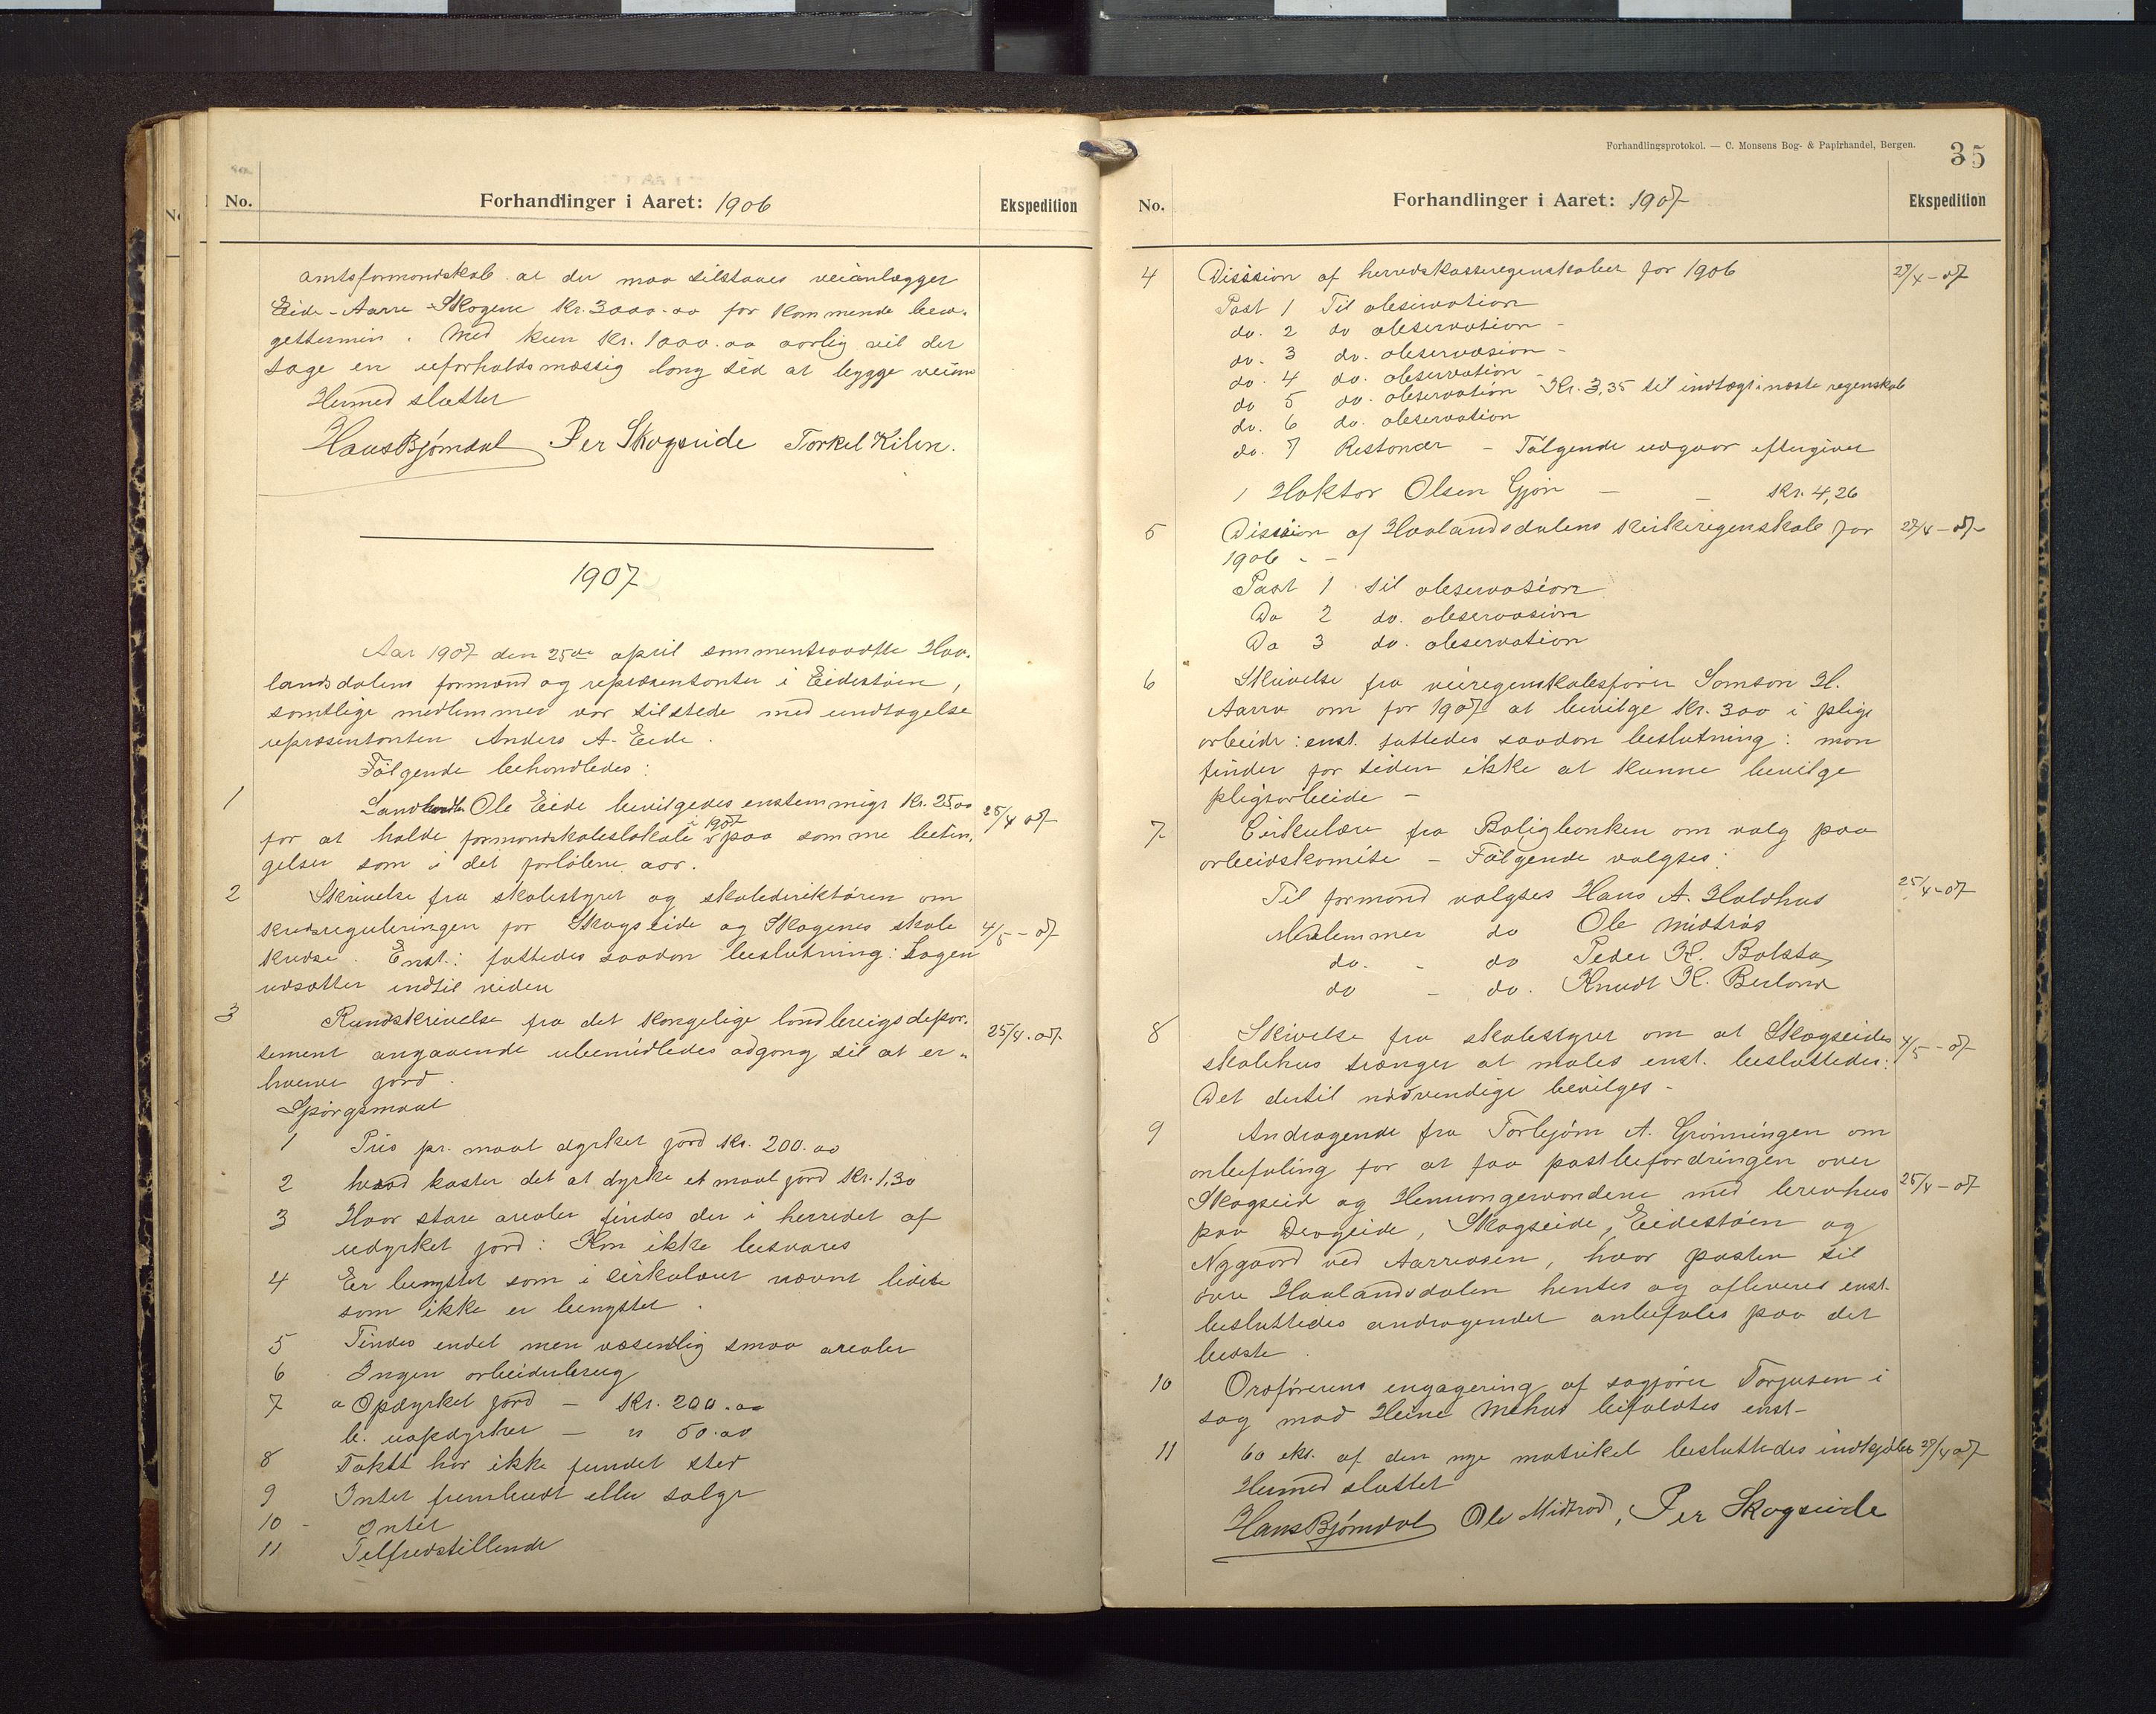 No.
Forhandlinger i Aaret: 1906
Ekspedition
amtsformondskab at der maa tilstaaes veianlægget
Eide-Aarre-Skogene Kr. 3000.00 for kommende bew.
gettermin. Med kun Kr. 1000.00 aarlig vil det
tage en uforholdsmæssig lang tid at bygge veien
Hermed sluttet
Hans Bjørndal Per Skogseide Torkel Kilen.
1907
Aar 1907 den 25de april sammentraadte Haa-
landsdalens formænd og repræsentanter i Eidestøen,
samtlige medlemmer var tilstede med undtagelse
repræsentanten Anders A. Eide.
Følgende behandledes:
1 Landhandler Ole Eide bevilgedes enstemmigt Kr. 25.00 25/4 07
for at holde formandskabslokale i 1907 paa samme betin.
gelser som i det forløbne aar.
2 Skrivelse fra skolestyret og skoledirektøren om
kredsreguleringen for Skogseide og Skogenes skole 4/5-07
kredse. Enst.: fattedes saadan beslutning: Sagen
udsættes indtil videre
3 Rundskrivelse fra det kongelige landbrugsdepar. 25/4.07.
tement angaaende ubemidledes adgang til at er-
hverve jord.
Spørgsmaal
1 Pris pr. maal dyrket jord Kr. 200.00
2 hvad koster det at dyrke et maal jord Kr. 130
3 Hvor store arealer findes der i herredet af
udyrket jord: Kan ikke besvares
4 Er benyttet som i cirkulæret nævnt lidet
som ikke er benyttet.
5 Findes endel men væsentlig smaa arealer
6 Ingen arbeiderbrug
7 a Opdyrket jord - Kr. 200.00
b. uopdyrket - " 50.00
8 Takst har ikke fundet sted
9 Intet frembudt eller solgt
10 - Intet
11 Tilfredstillende
Forhandlingsprotokol. — C. Monsens Bog- & Papirhandel, Bergen.
35
No.
Forhandlinger i Aaret: 1907
Ekspedition
4 Disision af herredskasseregnskabet for 1906 27/4-07
Post 1 Til observation
do. 2 do observation -
do. 3 do. observasion -
do. 4 do. observation -
do 5 do. observation Kr. 3,35 til indtægt i næste regnskab
do. 6 do. observation
do. 7 Restancer - Følgende udgaar eftergivet
1 Haktor Olsen Gjøn - - Kr. 4,26
5 Disision af Haalandsdalens kirkeregnskab for 27/4-07
1906 - -
Post 1 til observasion
Do 2 do. observasion
Do 3 do. observation
6 Skrivelse fra veiregnskabsfører Samson H.
Aarra om for 1907 at bevilge Kr. 300 i pligt
arbeide: enst. fattedes saadan beslutning: man
finder for tiden ikke at kunne bevilge
pligtarbeide -
7 Cirkulære fra Boligbanken om valg paa
arbeidskomite - Følgende valgtes:
Til formand valgtes Hans A. Holdhus 25/4-07
Medlemmer do Ole Midtrød
do. - do Peder K. Bolstad
do - do. Knudt K. Berland
8 Skivelse fra skolestyret om at Skogseides 4/5-07
skolehus trænger at males enst. besluttedes:
Det dertil nødvendige bevilges -
9 Andragende fra Torbjørn A. Grønningen om
anbefaling for at faa postbefordringen over
Skogseid og Henangervandene med brevhus 25/4-07
paa Drageide, Skogseide, Eidestøen og
Nygaard ved Aarreosen, hvor posten til
øvre Haalandsdalen hentes og afleveres enst.
besluttedes andragendet anbefales paa det
bedste.
10 Ordførerens engagering af sagfører Torjusen i
sag mod Heine Mehus bifaldtes enst-
11 60 eks. af den nye matrikel besluttedes indkjøbt 27/4 07
Hermed sluttet
Hans Bjørndal Ole Midtrød, Per Skogseide